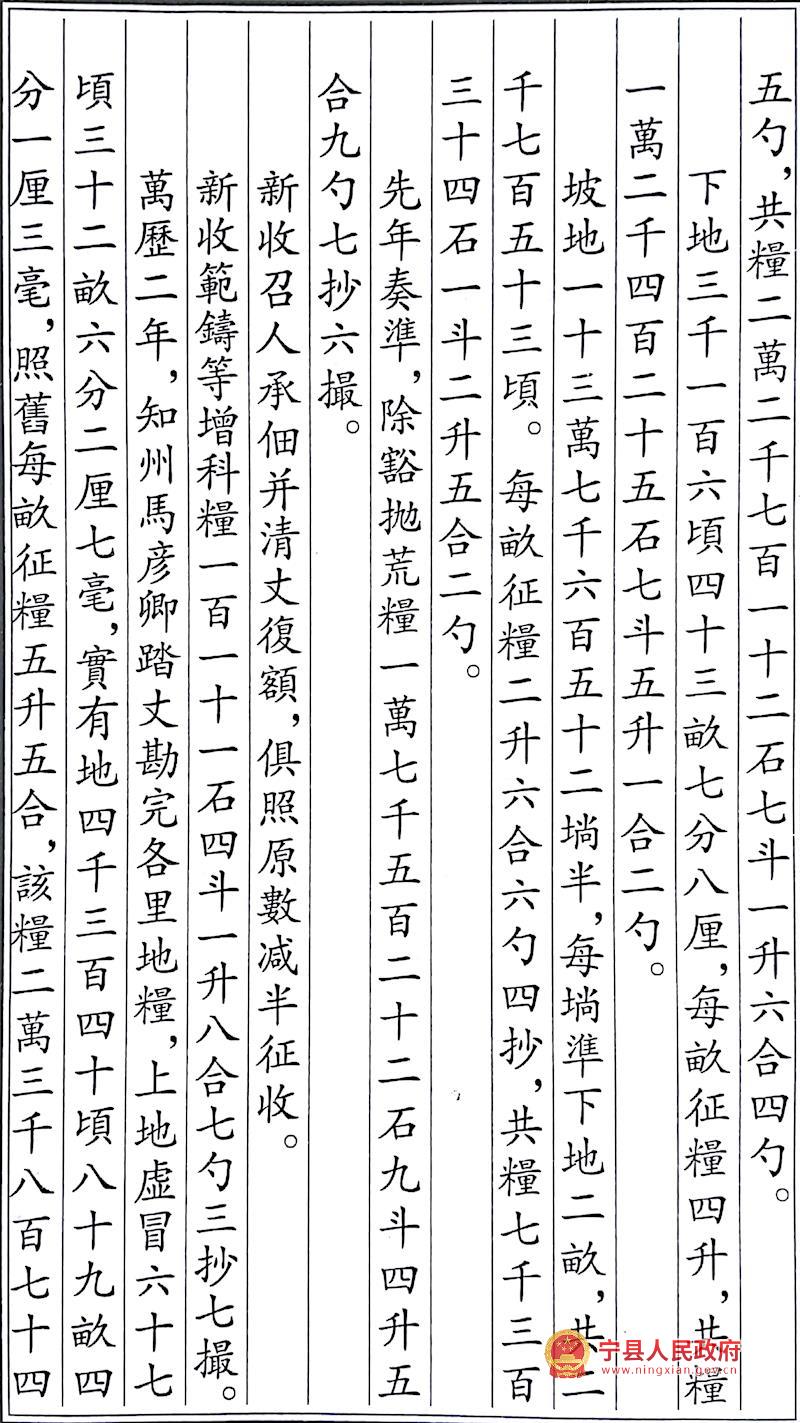 五勺，共糧二萬二千七百一十二石七斗一升六合四勺。
下地三千一百六頃四十三畝七分八厘，每畝征糧四升，共糧
一萬二千四百二十五石七斗五升一合二勺。
坡地一十三萬七千六百五十二塲半，每塲準下地二畝，共二
千七百五十三頃。每畝征糧二升六合六勺四抄，共糧七千三百
三十四石一斗二升五合二勺。
先年奏準，除豁拋荒糧一萬七千五百二十二石九斗四升五
合九勺七抄六撮。
新收召人承佃并清丈復額，俱照原數减半征收。
新收範鑄等增科糧一百一十一石四斗一升八合七勺三抄七撮。
萬歷二年，知州馬彦卿踏丈勘完各里地糧，上地虛冒六十七
頃三十二畝六分二厘七毫，實有地四千三百四十頃八十九畝四
分一厘三毫，照舊每畝征糧五升五合，該糧二萬三千八百七十四
宁县人民政府
www.ningxian.gov.cn